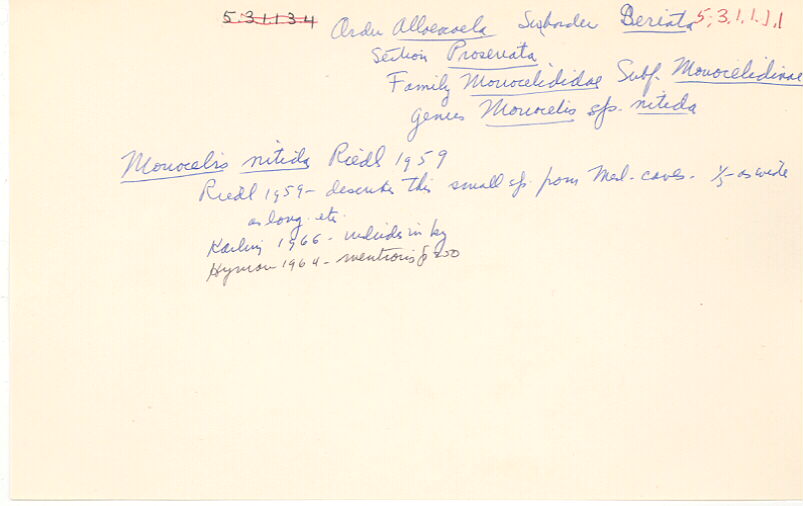 5.3.1.1.3.4 Order Alloeocoela Suborder Seriata 5,3,1,1.1,1
Section Proseriata
Family Monocelididae Subf. Monocelidinae
genus Monocelis sp. nitida
Monocelis nitida Riedl 1959
Riedl 1959 - describes this small sp. from Med. caves. 1/5 as wide
as long. etc.
Karling 1966 - includes in key
Hyman 1964 - mentions p 200